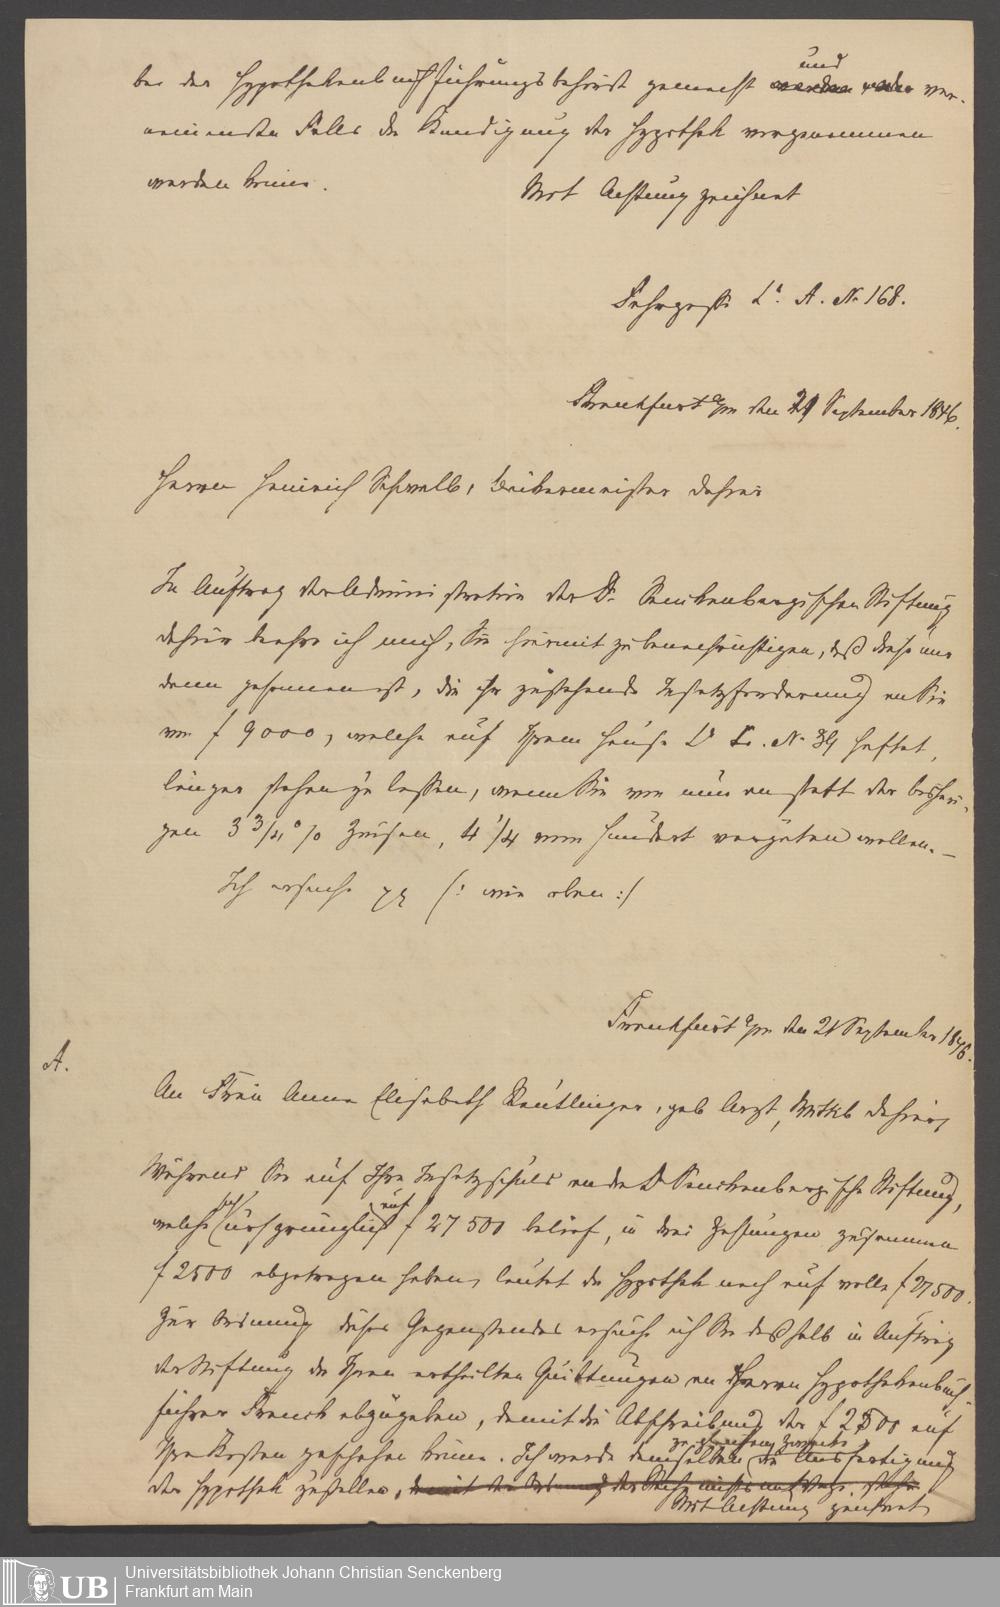 bei der Hypothekenbuchführungsbehörde gemacht und werden oder ver-
neinenden Falls die Kündigung der Hypothek vorgenommen
werden könne.
Mit Achtung zeichnet
Fahrgasse Lª. A. No 168.
Frankfurt a/m den 21 September 1846.
Herrn Heinrich Schwalb, meister dahier
Im Auftrag der Administration der Dr. Senckenbergischen Stiftung
dahier beehre ich mich, Sie hiermit zu benachrichtigen, daß diese nur
dann gesonnen ist, die ihr zustehende Insatzforderung an Sie
von f 9000, welche auf Ihrem Hause Lª No 34 haftet,
länger stehen zu lassen, wenn Sie von nun an statt der bisheri-
gen 3 3/4 % Zinsen, 4 1/4 vom Hundert vergüten wollen. –
Ich ersuche (: wie oben :)
Frankfurt a/m den 21 September 1846.
A.
An Frau Anna Elisabeth Reutlinger, geb Arzt, Wittib dahier,
Während Sie auf Ihre Insatzschuld an die Dr Senckenbergische Stiftung,
welche sich ursprünglich auf f 27500 belief, in drei Zahlungen zusammen
f 2500 abgetragen haben, lautet die Hypothek noch auf volle f 27500.
Zur Ordnung dieses Gegenstandes ersuche ich Sie deßhalb im Auftrag
der Stiftung die Ihnen ertheilten Quittungen an Herrn Hypothekenbuch-
führer Franck abzugeben, damit die Abschreibung der f 2500 auf
Ihre Kosten geschehen könne. Ich werde demselben zu gleichem Zwecke die Ausfertigung
der Hypothek zustellen, damit die Ordnung der
Mit Achtung zeichnet
Universitätsbibliothek Johann Christian Senckenberg
Frankfurt am Main
UB